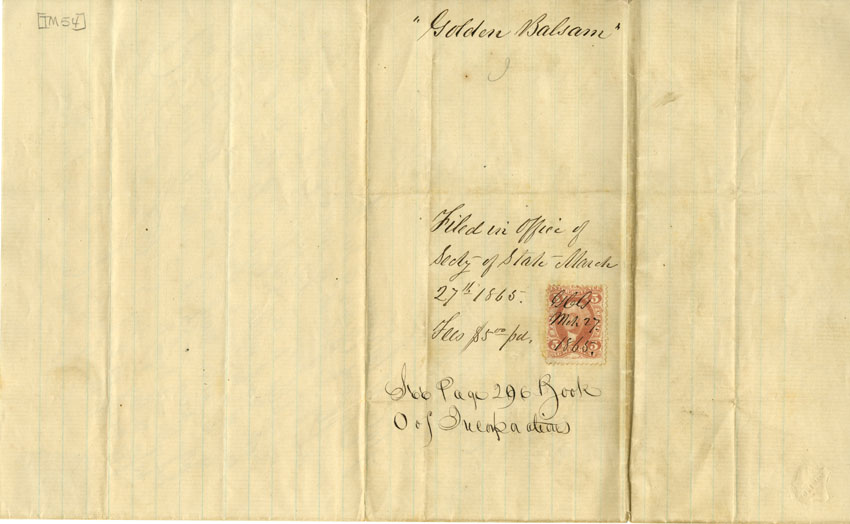 [TM54]
"Golden Balsam"
Filed in Office of
Secty of State March
27th 1865.
Fees $5 00 pd.
5
Mch 27,
5 1865.
See Page 296 Book
O of Incorporations